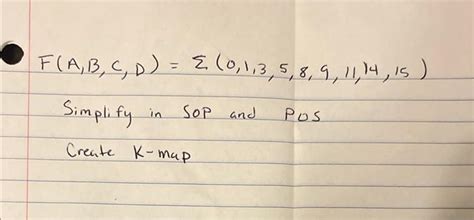 F(A,B,C,D) = Σ(0,1,3,5,8,9,11,14,15)
Simplify in SOP and POS
Create K-map